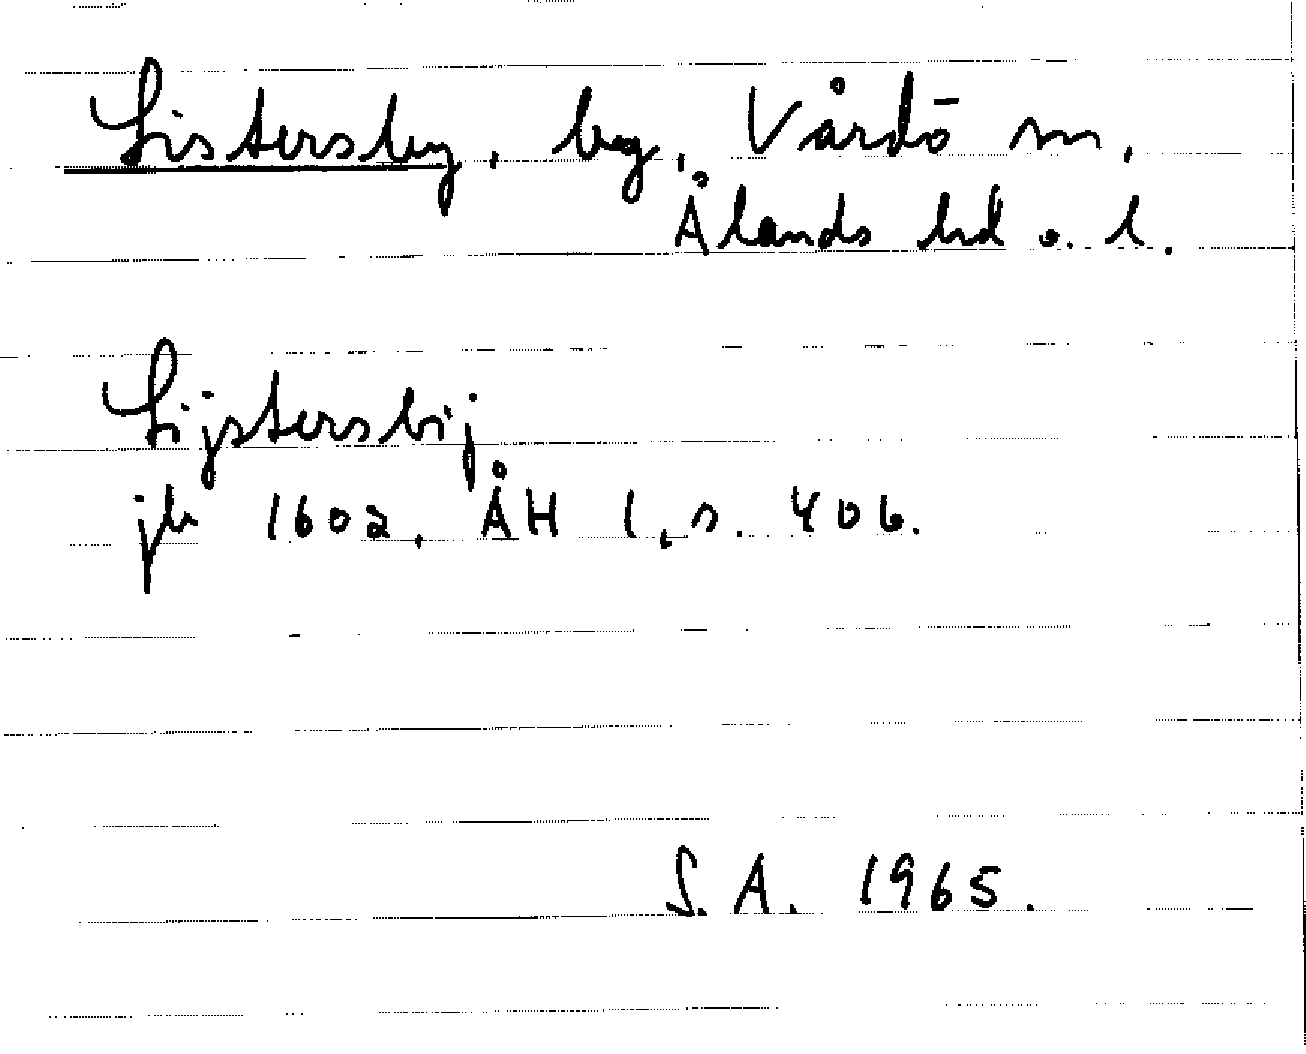 Listersby, by, Vårdö sn,
Ålands hd o. l.
Lijstersbij
jb 1602, ÅH 1, s. 406.
S. A. 1965.